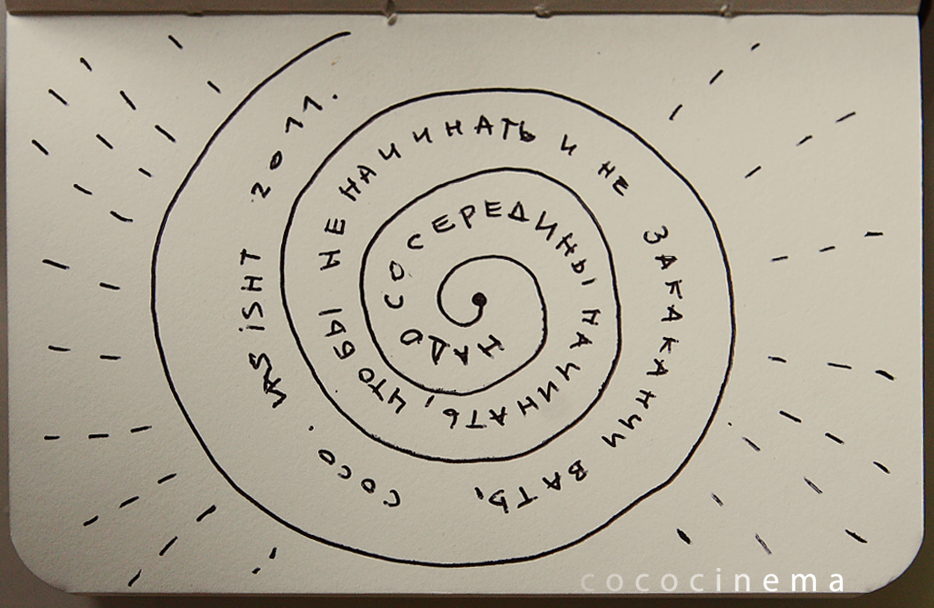 НАДО СО СЕРЕДИНЫ НАЧИНАТЬ, ЧТОБЫ НЕ НАЧИНАТЬ И НЕ ЗАКАКАНЧИ ВАТЬ, COCO. iSHT 2011.
cococinema